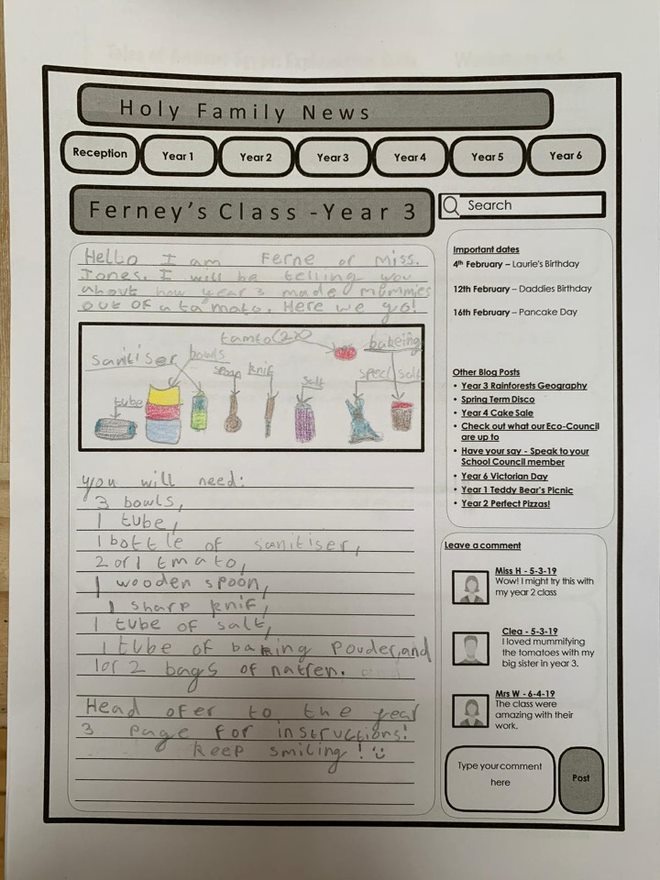 Holy Family News
Reception
Year 1
Year 2
Year 3
Year 4
Year 5
Year 6
Ferney's Class -Year 3
Search
Hello I am Ferne or Miss.
Jones. I will be telling you
about how year 3 made Mummies
out of a tamato. Here we go!
tamto(2x)
bakeing
Sanitiser
bowls
spoon
knif
salt
specl salt
tube
you will need:
3 bowls,
1 tube,
1 bottle of sanitiser,
2 or 1 tmato,
1 wooden spoon,
1 sharp knif,
1 tube of salt,
1 tube of baking pouder, and
1 or 2 bags of natren.
Head ofer to the year
3 page for instructions!
keep smiling!
Important dates
4th February – Laurie's Birthday
12th February – Daddies Birthday
16th February – Pancake Day
Other Blog Posts
• Year 3 Rainforests Geography
• Spring Term Disco
• Year 4 Cake Sale
• Check out what our Eco-Council
are up to
• Have your say - Speak to your
School Council member
• Year 6 Victorian Day
• Year 1 Teddy Bear's Picnic
• Year 2 Perfect Pizzas!
Leave a comment
Miss H - 5-3-19
Wow! I might try this with
my year 2 class
Clea - 5-3-19
I loved mummifying
the tomatoes with my
big sister in year 3.
Mrs W - 6-4-19
The class were
amazing with their
work.
Type your comment
here
Post